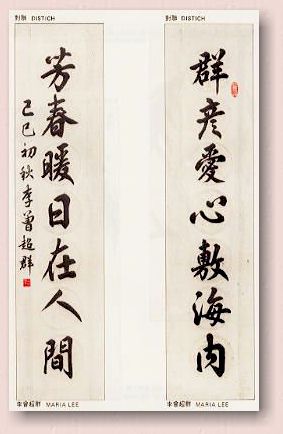 對聯 DISTICH
群彥愛心敷海內
李曾超群 MARIA LEE
對聯 DISTICH
芳春暖日在人間
己巳初秋李曾超群
李曾超群 MARIA LEE